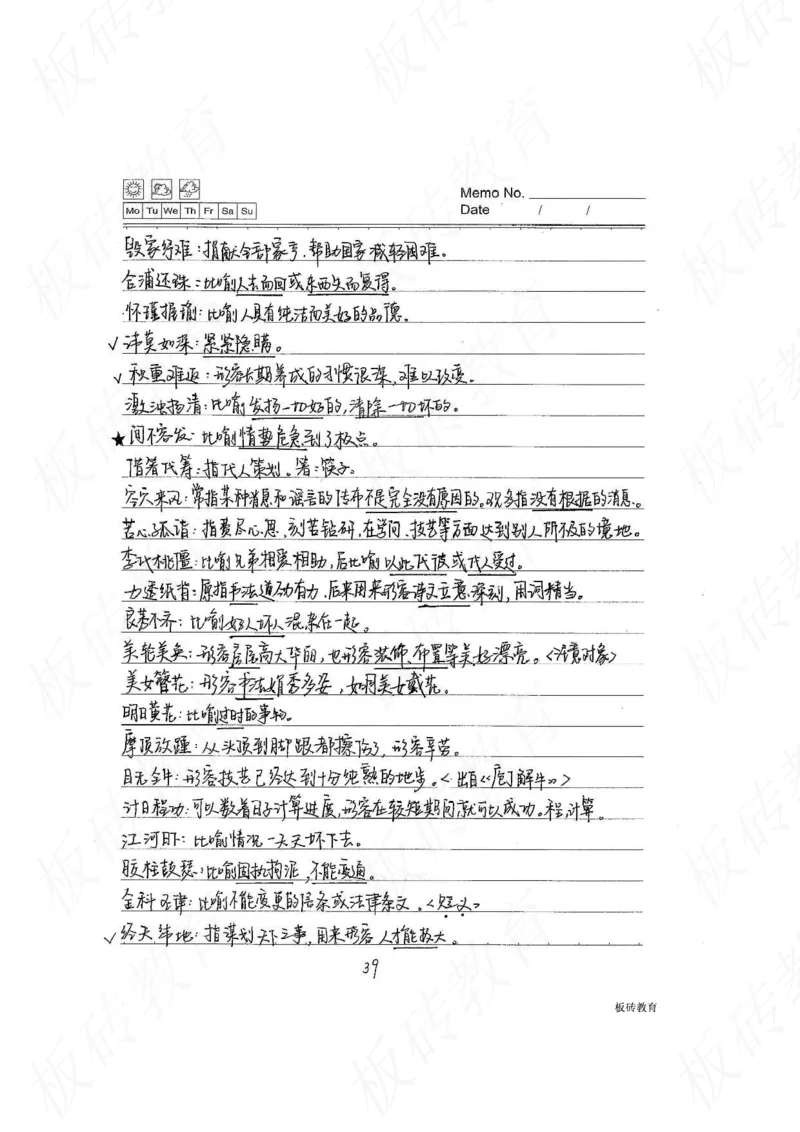 Memo No.
Mo Tu We Th Fr Sa Su
Date / /
毁家纾难：捐献全部家产，帮助国家减轻困难。
合浦还珠：比喻人去而回或东西失而复得。
怀瑾握瑜：比喻人具有纯洁而美好的品德。
✓讳莫如深：紧紧隐瞒。
✓积重难返：形容长期养成的习惯很深，难以改变。
激浊扬清：比喻发扬一切好的，清除一切坏的。
★间不容发：比喻情势危急到了极点。
借箸代筹：指代人策划。箸：筷子。
空穴来风：常指某种消息和谣言的传布不是完全没有原因的。现多指没有根据的消息。
苦心孤诣：指费尽心思，刻苦钻研，在学问、技艺等方面达到别人所不及的境地。
李代桃僵：比喻兄弟相爱相助，后比喻以此代彼或代人受过。
力透纸背：原指书法遒劲有力，后来用来形容诗文立意深刻，用词精当。
良莠不齐：比喻好人坏人混杂在一起。
美轮美奂：形容房屋高大华丽，也形容装饰、布置等美好漂亮。<注意对象>
美女簪花：形容书法娟秀多姿，如同美女戴花。
明日黄花：比喻过时的事物。
摩顶放踵：从头顶到脚跟都擦伤了，形容辛苦。
目无全牛：形容技艺已经达到十分纯熟的地步。<出自《庖丁解牛》>
计日程功：可以数着日子计算进度，形容在较短期间就可以成功。程，计算。
江河日下：比喻情况一天天坏下去。
胶柱鼓瑟：比喻固执拘泥，不能变通。
金科玉律：比喻不能变更的信条或法律条文。<贬义>
✓经天纬地：指谋划天下之事，用来形容人才能极大。
39
板砖教育